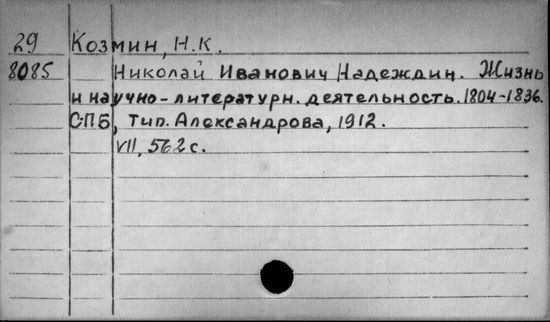 29 Козмин, Н.К.
8085 Николай Иванович Надеждин. Жизнь
и научно-литературн. деятельность. 1804-1836.
СПБ, Тип. Александрова, 1912.
VII, 562 с.